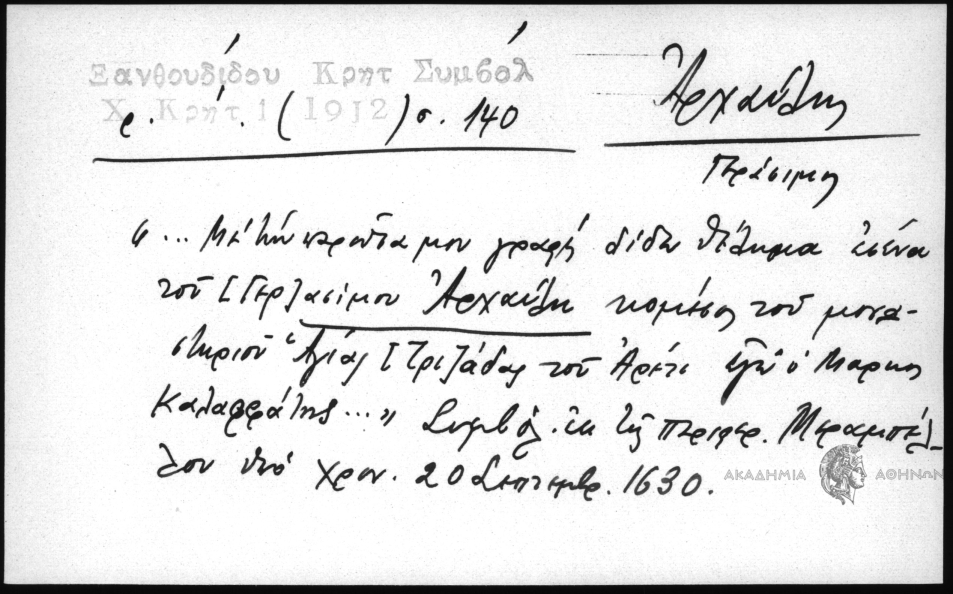 Ξανθουδίδου Κρητ Συμβόλ
Χ. Κρήτ 1 1912
ρ. . ( ) σ. 140
Ἀρχαύλης
Γεράσιμος
"... Μὲ τὴν παροῦσα μου γραφὴ δίδω θέλημα ἐσένα
τοῦ [Γερ]ασίμου Ἀρχαύλη κομέσος τοῦ μονα-
στηριοῦ Ἁγίας [Τρι]άδας τοῦ Ἀρέτι ἐγὼ ὁ Μάρκος
Καλαφφάτης ..." Συμβόλ. ἐκ τῆς περιφερ. Μεραμπέλ-
λου ὑπὸ χρον. 20 Σεπτεμβρ. 1630.
ΑΚΑΔΗΜΙΑ ΑΘΗΝΩΝ